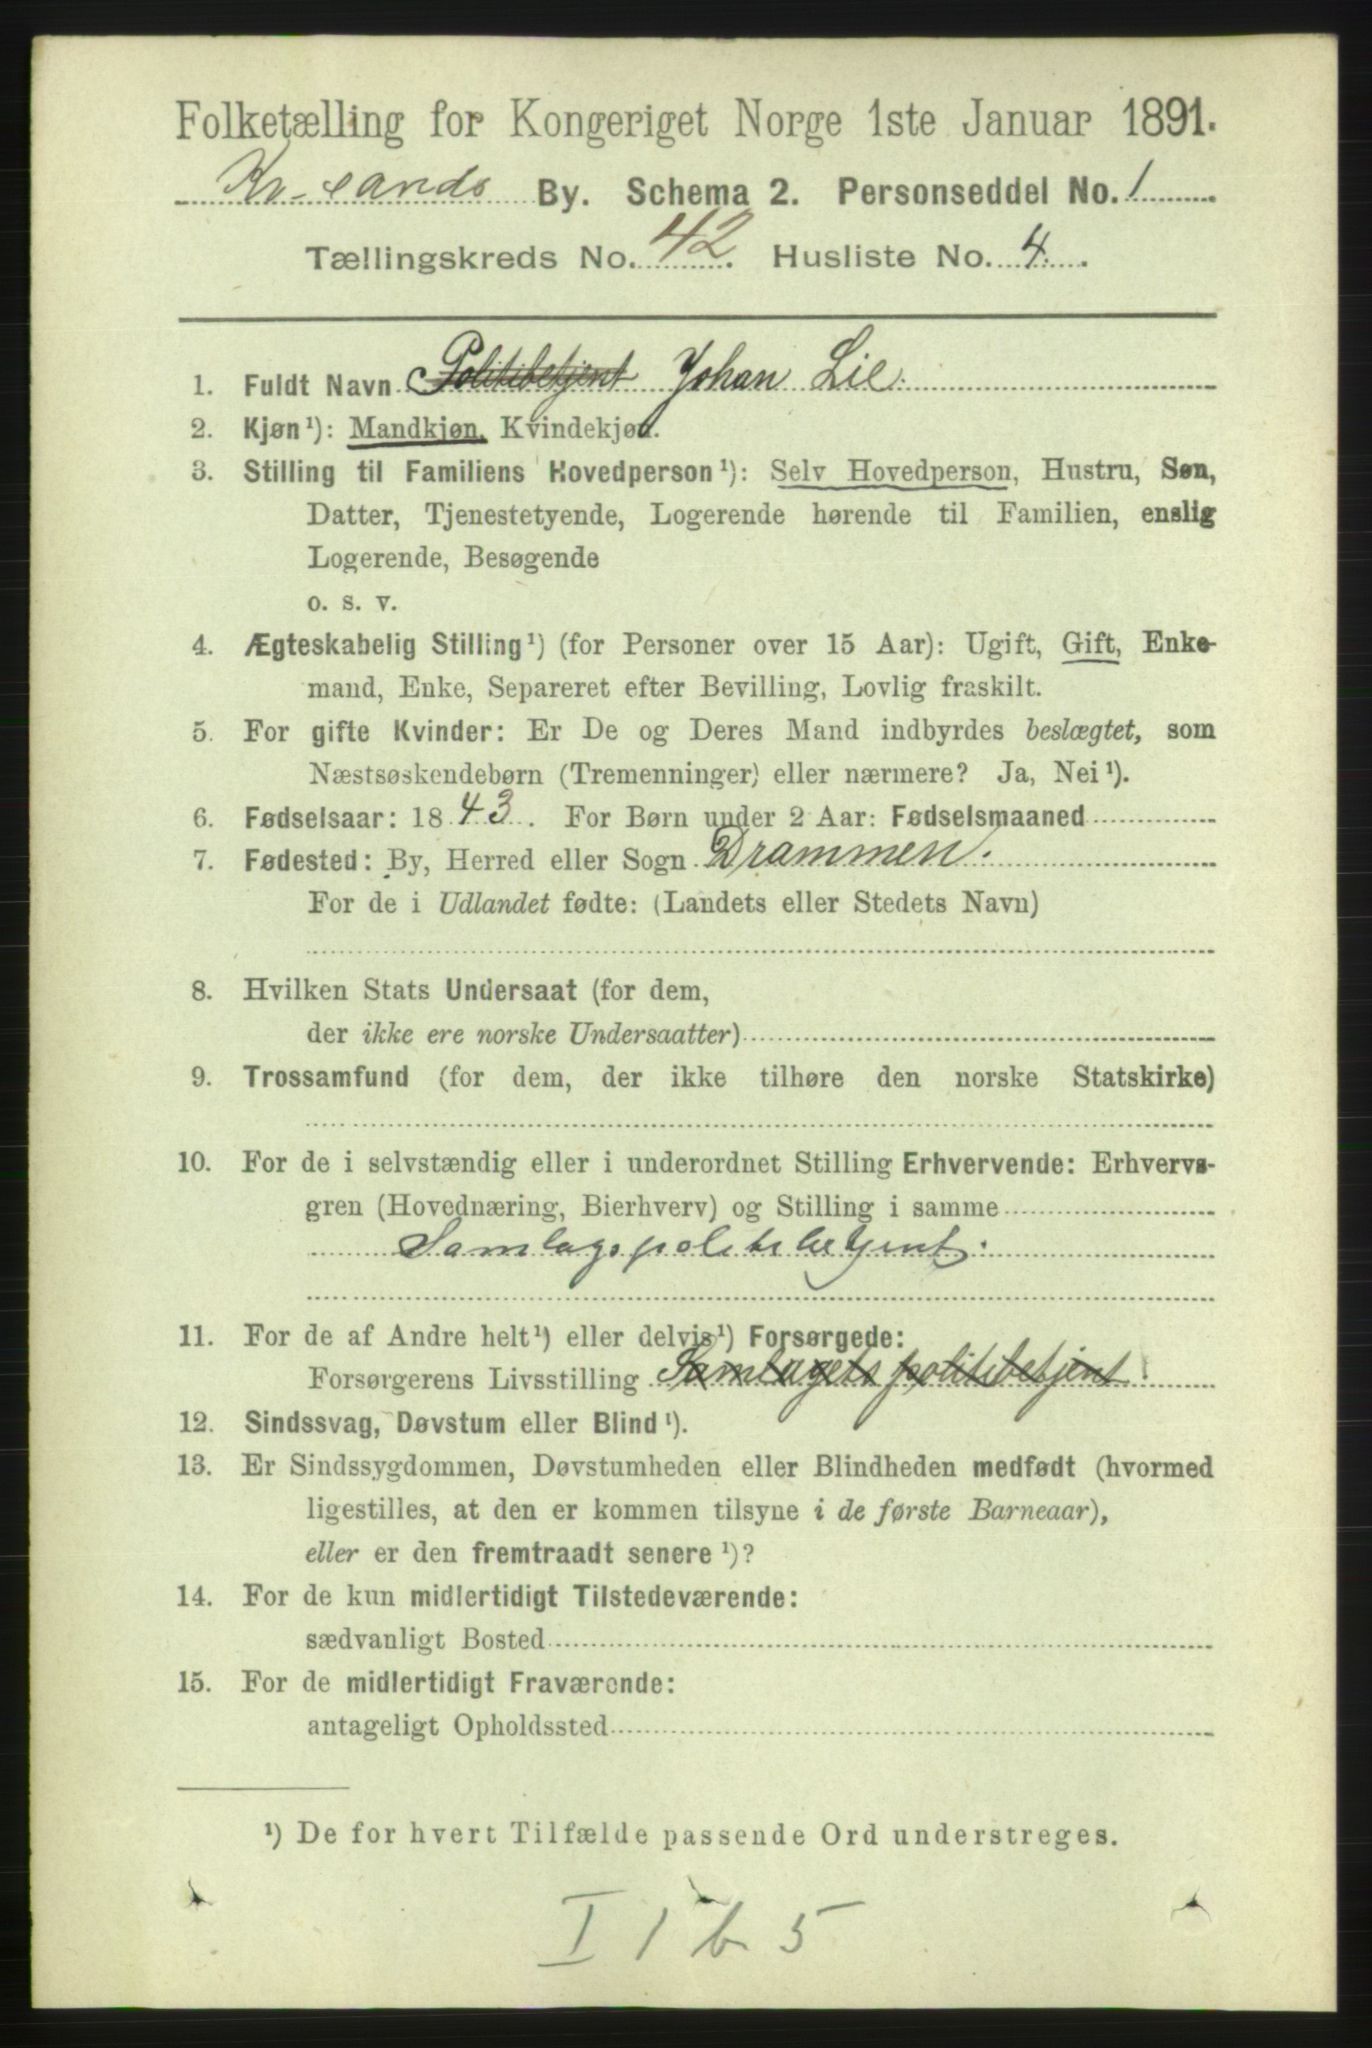 Folketælling for Kongeriget Norge 1ste Januar 1891.
Kr.sands By. Schema 2. Personseddel No. 1
Tællingskreds No. 42. Husliste No. 4.
1. Fuldt Navn Politibetjent Johan Lie.
2. Kjøn ¹): Mandkjøn, Kvindekjøn.
3. Stilling til Familiens Hovedperson ¹): Selv Hovedperson, Hustru, Søn,
Datter, Tjenestetyende, Logerende hørende til Familien, enslig
Logerende, Besøgende
o. s. v.
4. Ægteskabelig Stilling ¹) (for Personer over 15 Aar): Ugift, Gift, Enke-
mand, Enke, Separeret efter Bevilling, Lovlig fraskilt.
5. For gifte Kvinder: Er De og Deres Mand indbyrdes beslægtet, som
Næstsøskendebørn (Tremenninger) eller nærmere? Ja, Nei ¹).
6. Fødselsaar: 1843. For Børn under 2 Aar: Fødselsmaaned
7. Fødested: By, Herred eller Sogn Drammen.
For de i Udlandet fødte: (Landets eller Stedets Navn)
8. Hvilken Stats Undersaat (for dem,
der ikke ere norske Undersaatter)
9. Trossamfund (for dem, der ikke tilhøre den norske Statskirke)
10. For de i selvstændig eller i underordnet Stilling Erhvervende: Erhvervs-
gren (Hovednæring, Bierhverv) og Stilling i samme
Samlagspolitibetjent.
11. For de af Andre helt ¹) eller delvis ¹) Forsørgede:
Forsørgerens Livsstilling Samlagets politibetjent
12. Sindssvag, Døvstum eller Blind ¹).
13. Er Sindssygdommen, Døvstumheden eller Blindheden medfødt (hvormed
ligestilles, at den er kommen tilsyne i de første Barneaar),
eller er den fremtraadt senere ¹)?
14. For de kun midlertidigt Tilstedeværende:
sædvanligt Bosted
15. For de midlertidigt Fraværende:
antageligt Opholdssted
¹) De for hvert Tilfælde passende Ord understreges.
I 1 b 5